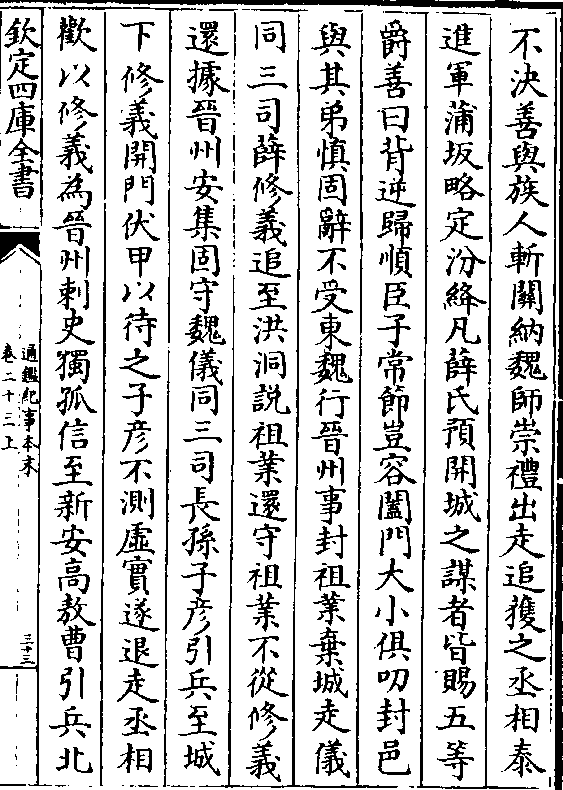 不決善與族人斬關納魏師崇禮出走追獲之丞相泰
進軍蒲坂略定汾絳凡薛氏預開城之謀者皆賜五等
爵善曰背逆歸順臣子常節豈容闔門大小俱叨封邑
與其弟慎固辭不受東魏行晉州事封祖業棄城走儀
同三司薛修義追至洪洞說祖業還守祖業不從修義
還據晉州安集固守魏儀同三司長孫子彥引兵至城
下修義開門伏甲以待之子彥不測虛實遂退走丞相
歡以修義為晉州刺史獨孤信至新安高敖曹引兵北
欽定四庫全書
通鑑紀事本末
卷二十三上
三十三